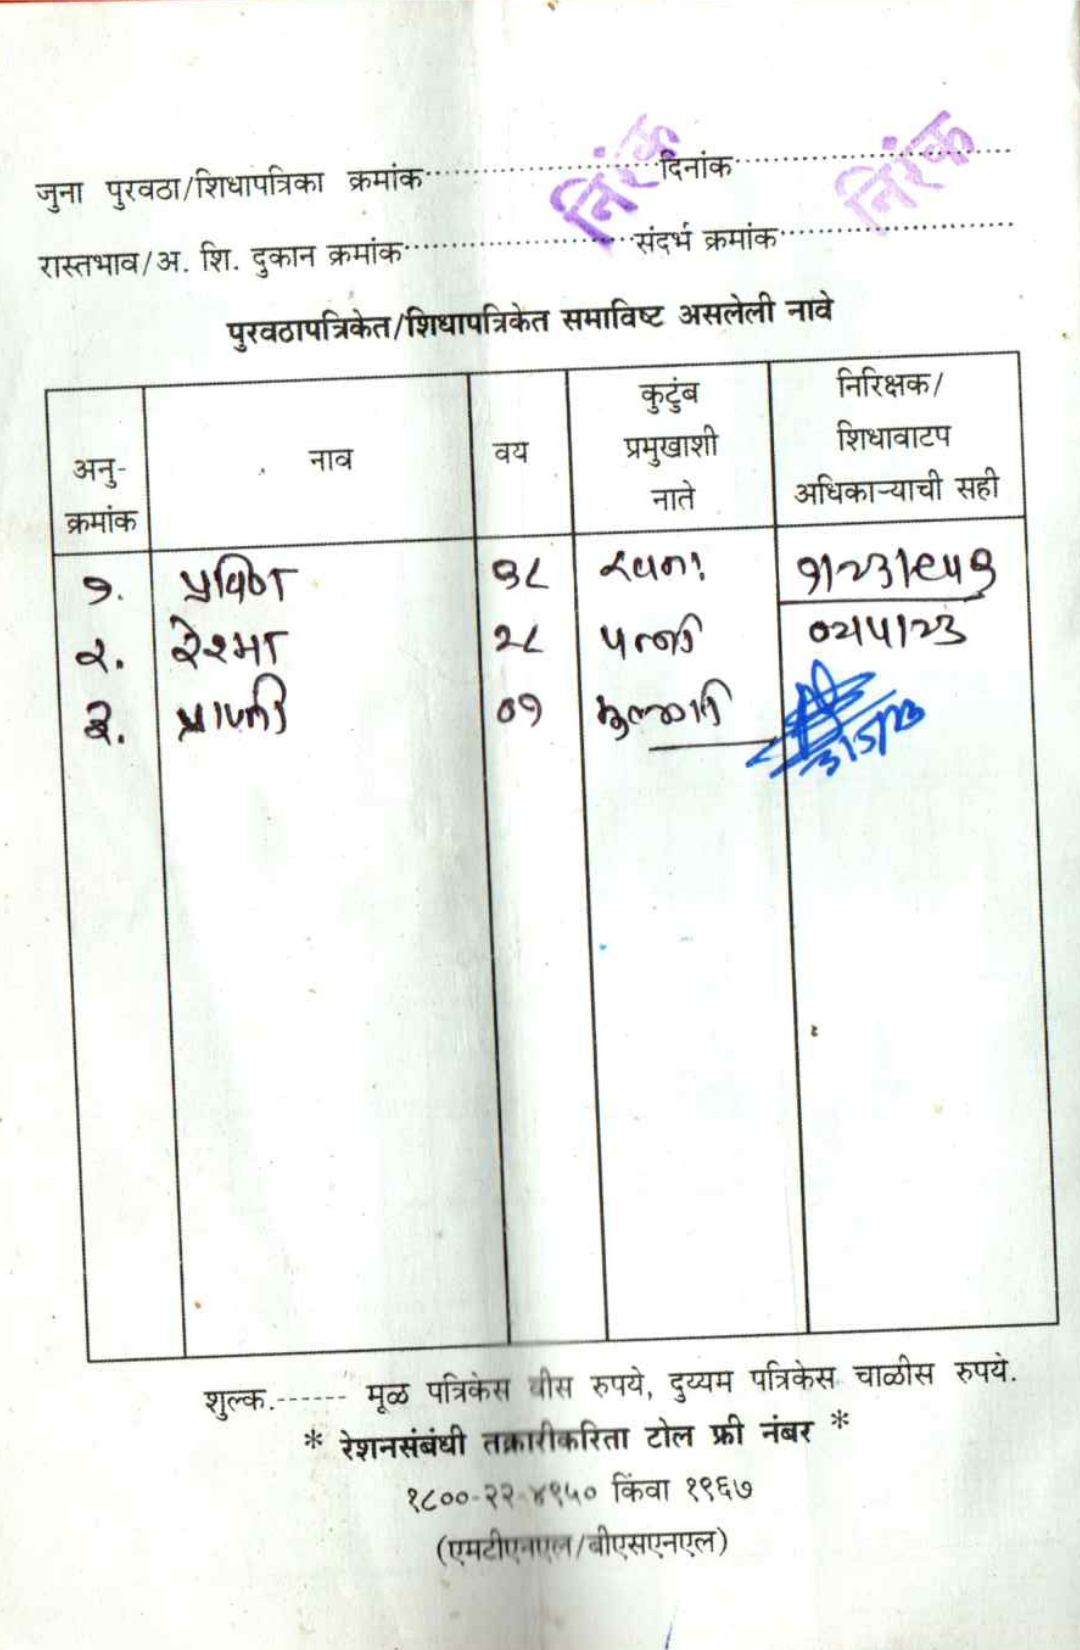 जुना पुरवठा/शिधापत्रिका क्रमांक निरंक दिनांक निरंक
रास्तभाव/अ. शि. दुकान क्रमांक संदर्भ क्रमांक
पुरवठापत्रिकेत/शिधापत्रिकेत समाविष्ट असलेली नावे
अनु-क्रमांक नाव वय कुटुंब प्रमुखाशी नाते निरिक्षक/शिधावाटप अधिकाऱ्याची सही
१. प्रविण ३८ स्वतः
२. रेश्मा २८ पत्नी
३. ०१ मुलगी
3/5/23
शुल्क.------ मूळ पत्रिकेस वीस रुपये, दुय्यम पत्रिकेस चाळीस रुपये.
* रेशनसंबंधी तक्रारीकरिता टोल फ्री नंबर *
१८००-२२-४९५० किंवा १९६७
(एमटीएनएल/बीएसएनएल)